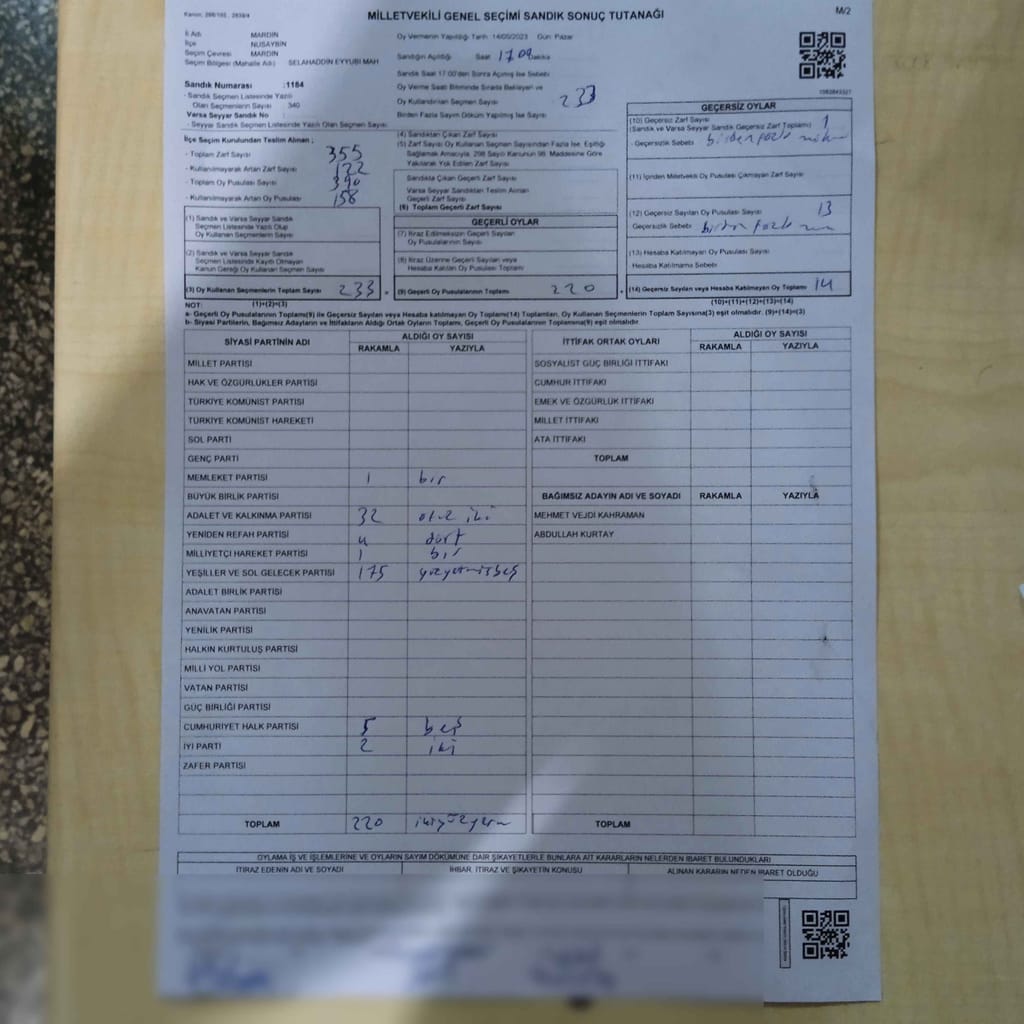 Kanun: 298/105 , 2839/4
MİLLETVEKİLİ GENEL SEÇİMİ SANDIK SONUÇ TUTANAĞI
M/2
İl Adı MARDİN
İlçe NUSAYBİN
Seçim Çevresi MARDİN
Seçim Bölgesi (Mahalle Adı) SELAHADDİN EYYUBİ MAH
Sandık Numarası :1184
- Sandık Seçmen Listesinde Yazılı
Olan Seçmenlerin Sayısı 340
Varsa Seyyar Sandık No :
- Seyyar Sandık Seçmen Listesinde Yazılı Olan Seçmen Sayısı
İlçe Seçim Kurulundan Teslim Alınan ;
- Toplam Zarf Sayısı 355
- Kullanılmayarak Artan Zarf Sayısı 122
- Toplam Oy Pusulası Sayısı 390
- Kullanılmayarak Artan Oy Pusulası 158
(1) Sandık ve Varsa Seyyar Sandık
Seçmen Listesinde Yazılı Olup
Oy Kullanan Seçmenlerin Sayısı
(2) Sandık ve Varsa Seyyar Sandık
Seçmen Listesinde Kayıtlı Olmayan
Kanun Gereği Oy Kullanan Seçmen Sayısı
(3) Oy Kullanan Seçmenlerin Toplam Sayısı 233
(1)+(2)=(3)
Oy Vermenin Yapıldığı Tarih 14/05/2023 Gün Pazar
Sandığın Açıldığı Saat 17.09 dakika
Sandık Saat 17:00'den Sonra Açılmış İse Sebebi
Oy Verme Saati Bitiminde Sırada Bekleyen ve
Oy Kullandırılan Seçmen Sayısı 233
Birden Fazla Sayım Döküm Yapılmış İse Sayısı
(4) Sandıktan Çıkan Zarf Sayısı
(5) Zarf Sayısı Oy Kullanan Seçmen Sayısından Fazla İse, Eşitliği
Sağlamak Amacıyla, 298 Sayılı Kanunun 98. Maddesine Göre
Yakılarak Yok Edilen Zarf Sayısı
Sandıkta Çıkan Geçerli Zarf Sayısı
Varsa Seyyar Sandıktan Teslim Alınan
Geçerli Zarf Sayısı
(6) Toplam Geçerli Zarf Sayısı
GEÇERLİ OYLAR
(7) İtiraz Edilmeksizin Geçerli Sayılan
Oy Pusulalarının Sayısı
(8) İtiraz Üzerine Geçerli Sayılan veya
Hesaba Katılan Oy Pusulası Toplamı
(9) Geçerli Oy Pusulalarının Toplamı 220
GEÇERSİZ OYLAR
(10) Geçersiz Zarf Sayısı 1
(Sandık ve Varsa Seyyar Sandık Geçersiz Zarf Toplamı)
- Geçersizlik Sebebi birden fazla
(11) İçinden Milletvekili Oy Pusulası Çıkmayan Zarf Sayısı
(12) Geçersiz Sayılan Oy Pusulası Sayısı 13
Geçersizlik Sebebi birden fazla
(13) Hesaba Katılmayan Oy Pusulası Sayısı
Hesaba Katılmama Sebebi
(14) Geçersiz Sayılan veya Hesaba Katılmayan Oy Toplamı 14
(10)+(11)+(12)+(13)=(14)
NOT:
a- Geçerli Oy Pusulalarının Toplamı(9) ile Geçersiz Sayılan veya Hesaba katılmayan Oy Toplamı(14) Toplamları, Oy Kullanan Seçmenlerin Toplam Sayısına(3) eşit olmalıdır. (9)+(14)=(3)
b- Siyasi Partilerin, Bağımsız Adayların ve İttifakların Aldığı Ortak Oyların Toplamı, Geçerli Oy Pusulalarının Toplamına(9) eşit olmalıdır.
SİYASİ PARTİNİN ADI
ALDIĞI OY SAYISI
RAKAMLA YAZIYLA
MİLLET PARTİSİ
HAK VE ÖZGÜRLÜKLER PARTİSİ
TÜRKİYE KOMÜNİST PARTİSİ
TÜRKİYE KOMÜNİST HAREKETİ
SOL PARTİ
GENÇ PARTİ
MEMLEKET PARTİSİ 1 bir
BÜYÜK BİRLİK PARTİSİ
ADALET VE KALKINMA PARTİSİ 32 otuz iki
YENİDEN REFAH PARTİSİ 4 dört
MİLLİYETÇİ HAREKET PARTİSİ 1 bir
YEŞİLLER VE SOL GELECEK PARTİSİ 175 yüzyetmişbeş
ADALET BİRLİK PARTİSİ
ANAVATAN PARTİSİ
YENİLİK PARTİSİ
HALKIN KURTULUŞ PARTİSİ
MİLLİ YOL PARTİSİ
VATAN PARTİSİ
GÜÇ BİRLİĞİ PARTİSİ
CUMHURİYET HALK PARTİSİ 5 beş
İYİ PARTİ 2 iki
ZAFER PARTİSİ
TOPLAM 220
İTTİFAK ORTAK OYLARI
ALDIĞI OY SAYISI
RAKAMLA YAZIYLA
SOSYALİST GÜÇ BİRLİĞİ İTTİFAKI
CUMHUR İTTİFAKI
EMEK VE ÖZGÜRLÜK İTTİFAKI
MİLLET İTTİFAKI
ATA İTTİFAKI
TOPLAM
BAĞIMSIZ ADAYIN ADI VE SOYADI RAKAMLA YAZIYLA
MEHMET VEJDİ KAHRAMAN
ABDULLAH KURTAY
TOPLAM
OYLAMA İŞ VE İŞLEMLERİNE VE OYLARIN SAYIM DÖKÜMÜNE DAİR ŞİKAYETLERLE BUNLARA AİT KARARLARIN NELERDEN İBARET BULUNDUKLARI
İTİRAZ EDENİN ADI VE SOYADI İHBAR, İTİRAZ VE ŞİKAYETİN KONUSU ALINAN KARARIN NEDEN İBARET OLDUĞU